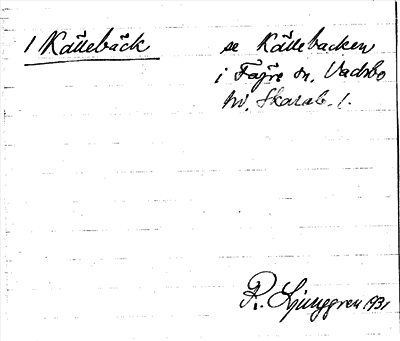 1 Källebäck
se Källebacken
i Fägre sn, Vadsbo
hd, Skarab. l.
R. Ljunggren 1931